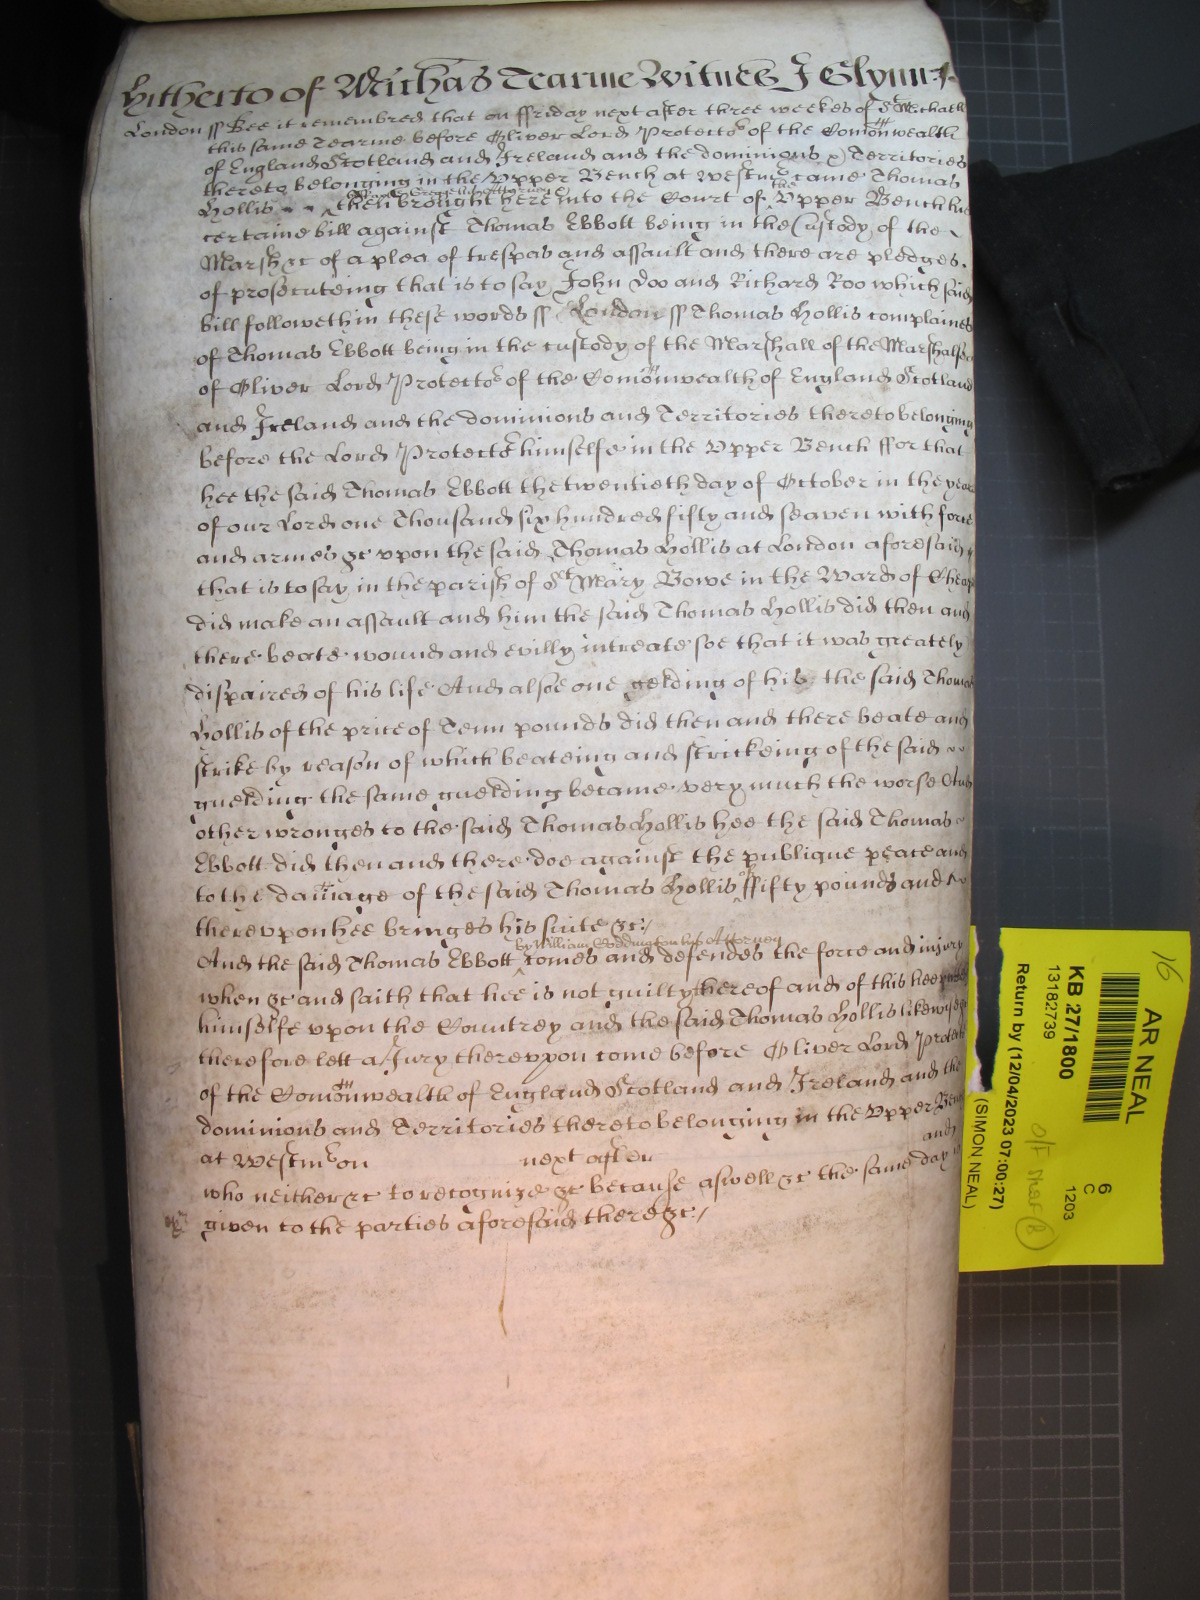 Hitherto of Michas Tearme Witnes J Glynn
London ss Bee it remembred that on ffriday next after three weekes of St Michaell
this same Tearme before Oliver Lord Protector of the Comonwealth
of England Scotland and Ireland and the dominions & Territories
thereto belonging in the Upper Bench at Westmr came Thomas
Attorney
Hollis then brought here into the Court of the Upper Bench his
certaine bill against Thomas Ebbott being in the Custody of the
Marsh &c of a plea of trespas and assault and there are pledges
of prosecuteing that is to say John Doo and Richard Roo which said
bill followeth in these words ss London ss Thomas Hollis complaines
of Thomas Ebbott being in the custody of the Marshall of the Marshalsea
of Oliver Lord Protector of the Comonwealth of England Scotland
and Ireland and the dominions and Territories thereto belonging
before the Lord Protector himselfe in the Upper Bench ffor that
hee the said Thomas Ebbott the twentieth day of October in the yeare
of our Lord one Thousand six hundred fifty and seaven with force
and armes &c upon the said Thomas Hollis at London aforesaid
that is to say in the parish of St Mary Bowe in the Ward of Cheap
did make an assault and him the said Thomas Hollis did then and
there beate wound and evilly intreate soe that it was greately
dispaired of his life And alsoe one gelding of his the said Thomas
Hollis of the price of Tenn pounds did then and there beate and
strike by reason of which beateing and strickeing of the said
guelding the same guelding became very much the worse And
other wronges to the said Thomas Hollis hee the said Thomas
Ebbott did then and there doe against the publique peace and
to the damage of the said Thomas Hollis of ffifty pounds and
thereupon hee bringes his suite &c/
by William Coddington his Attorney
And the said Thomas Ebbott comes and defendes the force and injury
when &c and saith that hee is not guilty thereof and of this hee putts
himselfe upon the Countrey and the said Thomas Hollis likewise &c
therefore lett a Jury thereupon come before Oliver Lord Protector
of the Comonwealth of England Scotland and Ireland and the
dominions and Territories thereto belonging in the Upper Bench
at Westmr on next after and
who neither &c to recognize &c because aswell &c the same day is
given to the parties aforesaid there &c/
16
AR NEAL
KB 27/1800
13182739
Return by (12/04/2023 07:00:27)
(SIMON NEAL)
6
C
1203